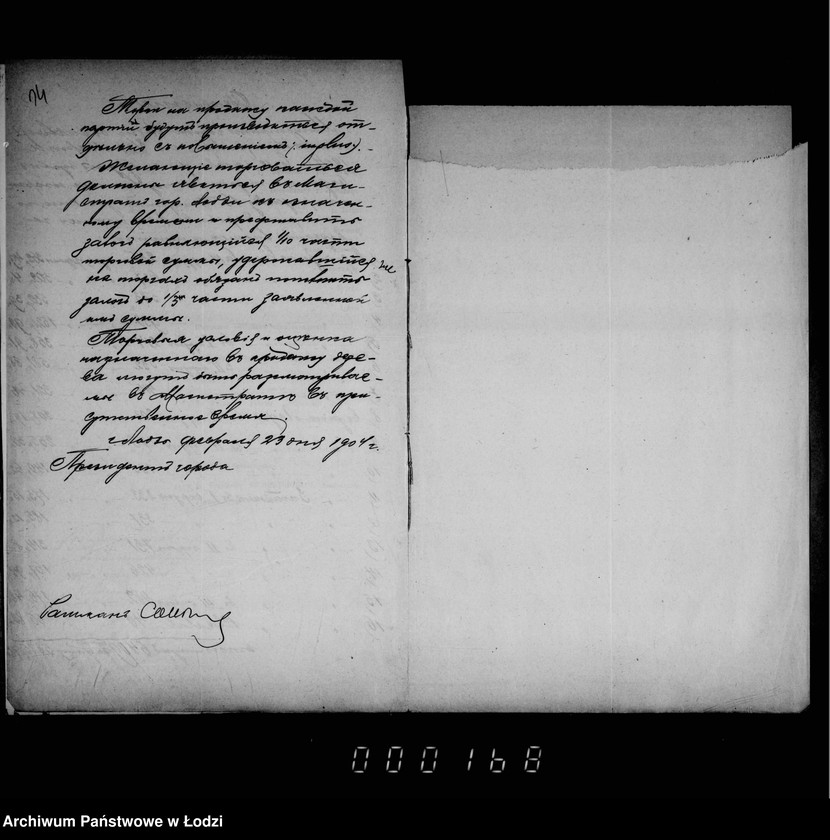 74
Торги на продажу каждой
партіи будутъ производиться от-
дѣльно съ повышеніемъ (in plus).
Желающіе торговаться
должны явиться въ Маги-
стратъ гор. Лодзи въ означен-
ному времени и представить
залогъ равняющійся 1/10 части
торговой суммы, удержавшійся же
на торгахъ обязанъ пополнить
залогъ до 1/5 части заявленной
имъ суммы.
Торговыя условія и оцѣнка
назначеннаго въ продажу дере-
ва могутъ быть разсматривае-
мы въ Магистратѣ въ при-
сутственное время.
г. Лодзь февраля 23 дня 1904 г.
Президентъ города
000168
Archiwum Państwowe w Łodzi